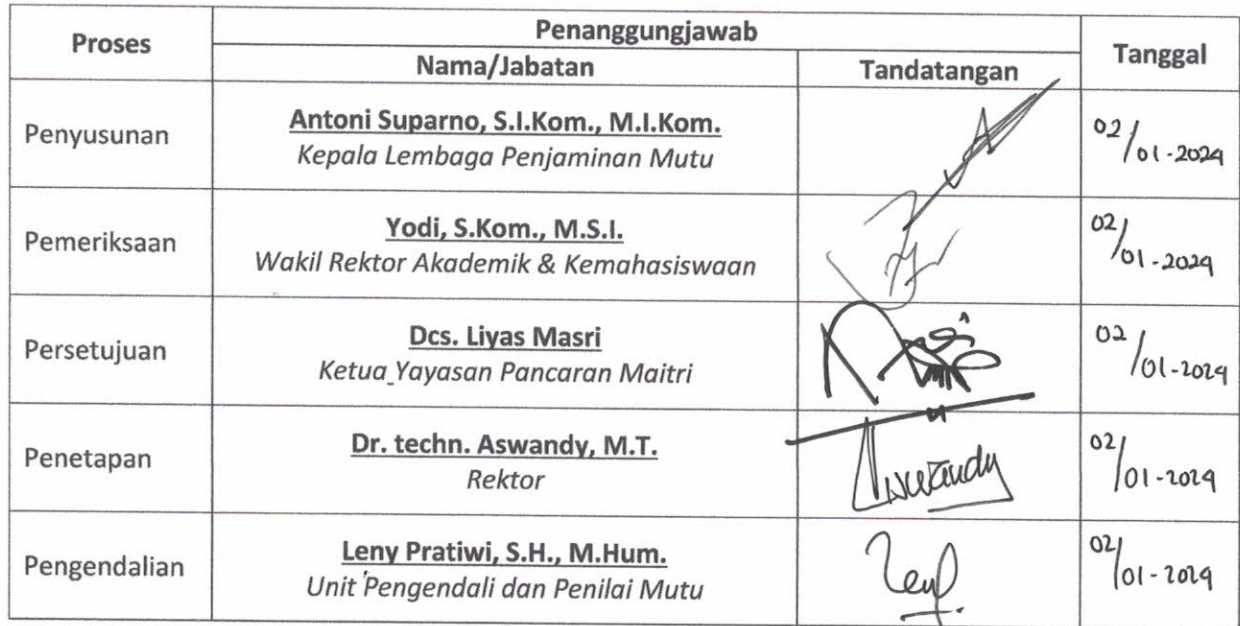 Proses
Penanggungjawab
Tanggal
Nama/Jabatan
Tandatangan
Penyusunan
Antoni Suparno, S.I.Kom., M.I.Kom.
Kepala Lembaga Penjaminan Mutu
02/01-2024
Pemeriksaan
Yodi, S.Kom., M.S.I.
Wakil Rektor Akademik & Kemahasiswaan
02/01-2024
Persetujuan
Dcs. Liyas Masri
Ketua Yayasan Pancaran Maitri
02/01-2024
Penetapan
Dr. techn. Aswandy, M.T.
Rektor
02/01-2024
Pengendalian
Leny Pratiwi, S.H., M.Hum.
Unit Pengendali dan Penilai Mutu
02/01-2024